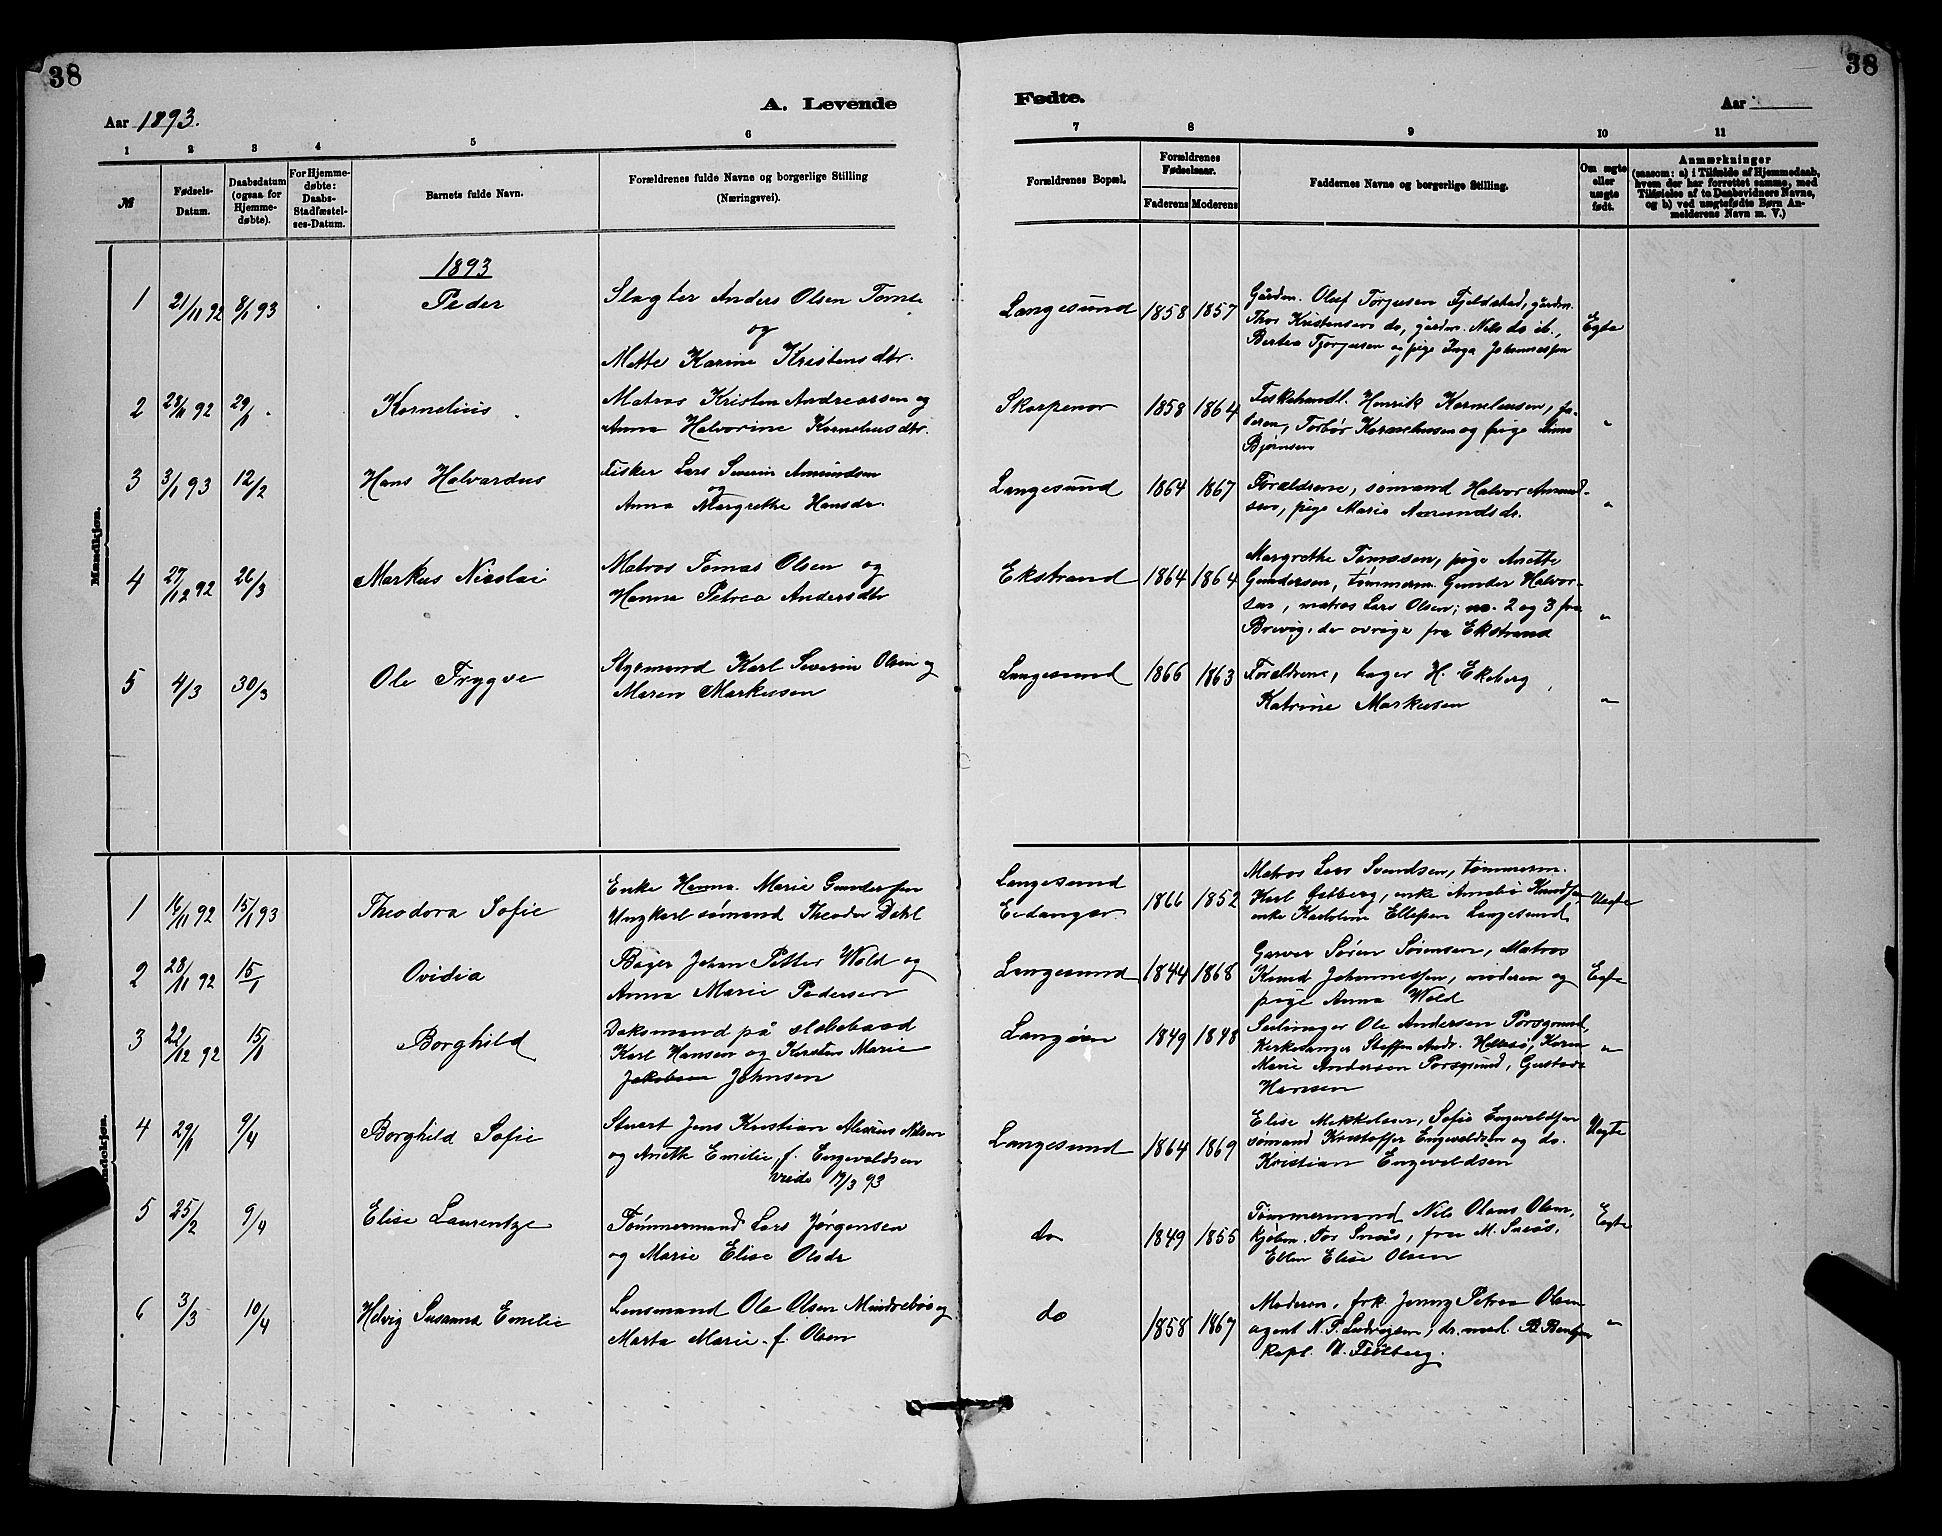 38
38
A. Levende
Fødte.
Aar 1893.
Aar
1
2
3
4
5
6
7
8
9
10
11
№
Fødsels-
Datum.
Daabsdatum
(ogsaa for
Hjemme-
døbte).
For Hjemme-
døbte:
Daabs-
Stadfæstel-
ses-Datum.
Barnets fulde Navn.
Forældrenes fulde Navne og borgerlige Stilling
(Næringsvei).
Forældrenes Bopæl.
Forældrenes
Fødselsaar.
Faderens
Moderens
Faddernes Navne og borgerlige Stilling.
Om ægte
eller
uægte
født.
Anmærkninger
(saasom: a) i Tilfælde af Hjemmedaab,
hvem der har forrettet samme, med
Tilføielse af to Daabsvidners Navne,
og b) ved uægtefødte Børn An-
melderens Navn m. V.)
Mandkjøn.
1893
1 21/11 92 8/1 93 Peder
Slagter Anders Olsen Tomte
og
Mette Karine Kristensdtr.
Langesund 1858 1857
Gårdm. Oluf Torjusen Fjeldstad, gårdm.
Thor Kristensen do, gårdm. Nils do ib.,
Bertea Torjusen og pige Inga Johannessen
Egte
2 28/11 92 29/1 Kornelius
Matros Kristen Andreassen og
Anna Halvorine Korneliusdtr.
Skarpenor 1858 1864
Fiskehandl. Henrik Korneliussen, fa-
deren, Torbør Korneliussen og pige
Bjørnsen
"
3 3/1 93 12/2 Hans Halvardus
Fisker Lars Severin Amundsen
og
Anna Margrethe Hansdr.
Langesund 1864 1867
Forældrene, sømand Halvor Amund-
sen, pige Marie Amundsdr.
"
4 27/12 92 26/3 Markus Nicolai
Matros Tomas Olsen og
Hanna Petrea Andersdtr
Ekstrand 1864 1864
Margrethe Tomassen, pige Anette
Gundersen, tømmerm. Gunder Halvor-
sen, matros Lars Olsen; no. 2 og 3 fra
Brevig, de øvrige fra Ekstrand
"
5 4/3 30/3 Ole Trygve
Styrmand Karl Severin Olsen og
Maren Markussen
Langesund 1866 1863
Forældrene, bager H. Ekeberg
Katrine Markusen
"
1 16/11 92 15/1 93 Theodora Sofie
Enke Hanna Marie Gundersen
Ungkarl sømand Theodor Dahl
Langesund
Eidanger
1866 1852
Matros Lars Svendsen, tømmerm.
Karl Galberg, enke Knudsen
enke Ellefsen Langesund
Uegte
2 28/11 92 15/1 Ovidia
Bager Johan Petter Wold og
Anna Marie Pedersen
Langesund 1844 1868
Garver Søren Sørensen, Matros
Knud Johannessen, moderen og
pige Anna Wold
Egte
3 22/12 92 15/1 Borghild
Daksmand på slæbebaad
Karl Hansen og Karsten Marie
Jakobsen Johnsen
Langøen 1849 1848
Seilmager Ole Andersen Porsgrund,
Kirkesanger Steffen Andr. Hellesø, Karen
Marie Andersen Porsgrund, Gustava
Hansen
"
4 29/1 9/4 Borghild Sofie
Stuert Jens Kristian Marius Nilsen
og Anette Emilie f. Engevoldsen
viede 17/3 93
Langesund 1864 1869
Elise Mekkelsen, Sofie Engevoldsen
sømand Kristoffer Engevoldsen og do.
Kristian Engevoldsen
Uegte
5 25/2 9/4 Elise Laurentze
Tømmermand Lars Jørgensen
og Marie Elise Olsdr
do 1849 1855
Tømmermand Nils Olaus Olsen,
kjøbm. Tor Sneås, frue M. Sneås,
Ellen Elise Olsen
Egte
6 3/3 10/4 Helvig Susanna Emilie
Lensmand Ole Olsen Mindrebøe og
Marta Marie f. Olsen
do 1858 1867
Moderen, frk. Jenny Petrea Olsen
agent N. P. Ludvigsen, dr. med. B. Bentzen
kapl. N. Fløtberg.
"